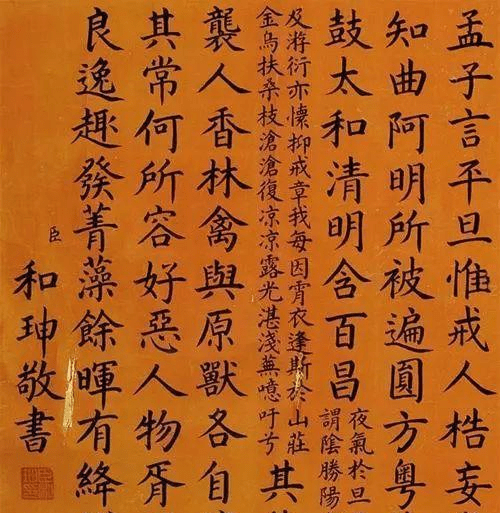 孟子言平旦惟戒人梏妄
知曲阿明所被遍圓方粤
鼓太和清明含百昌
夜氣於旦
謂陰勝陽
及游衍亦懷抑戒章我每因宵衣逢斯於山莊
金烏扶桑枝滄滄復凉凉露光湛淺蕪噫吁兮
其
襲人香林禽與原獸各自
其常何所容好惡人物胥
良逸趣發菁藻餘暉有絳
臣和珅敬書